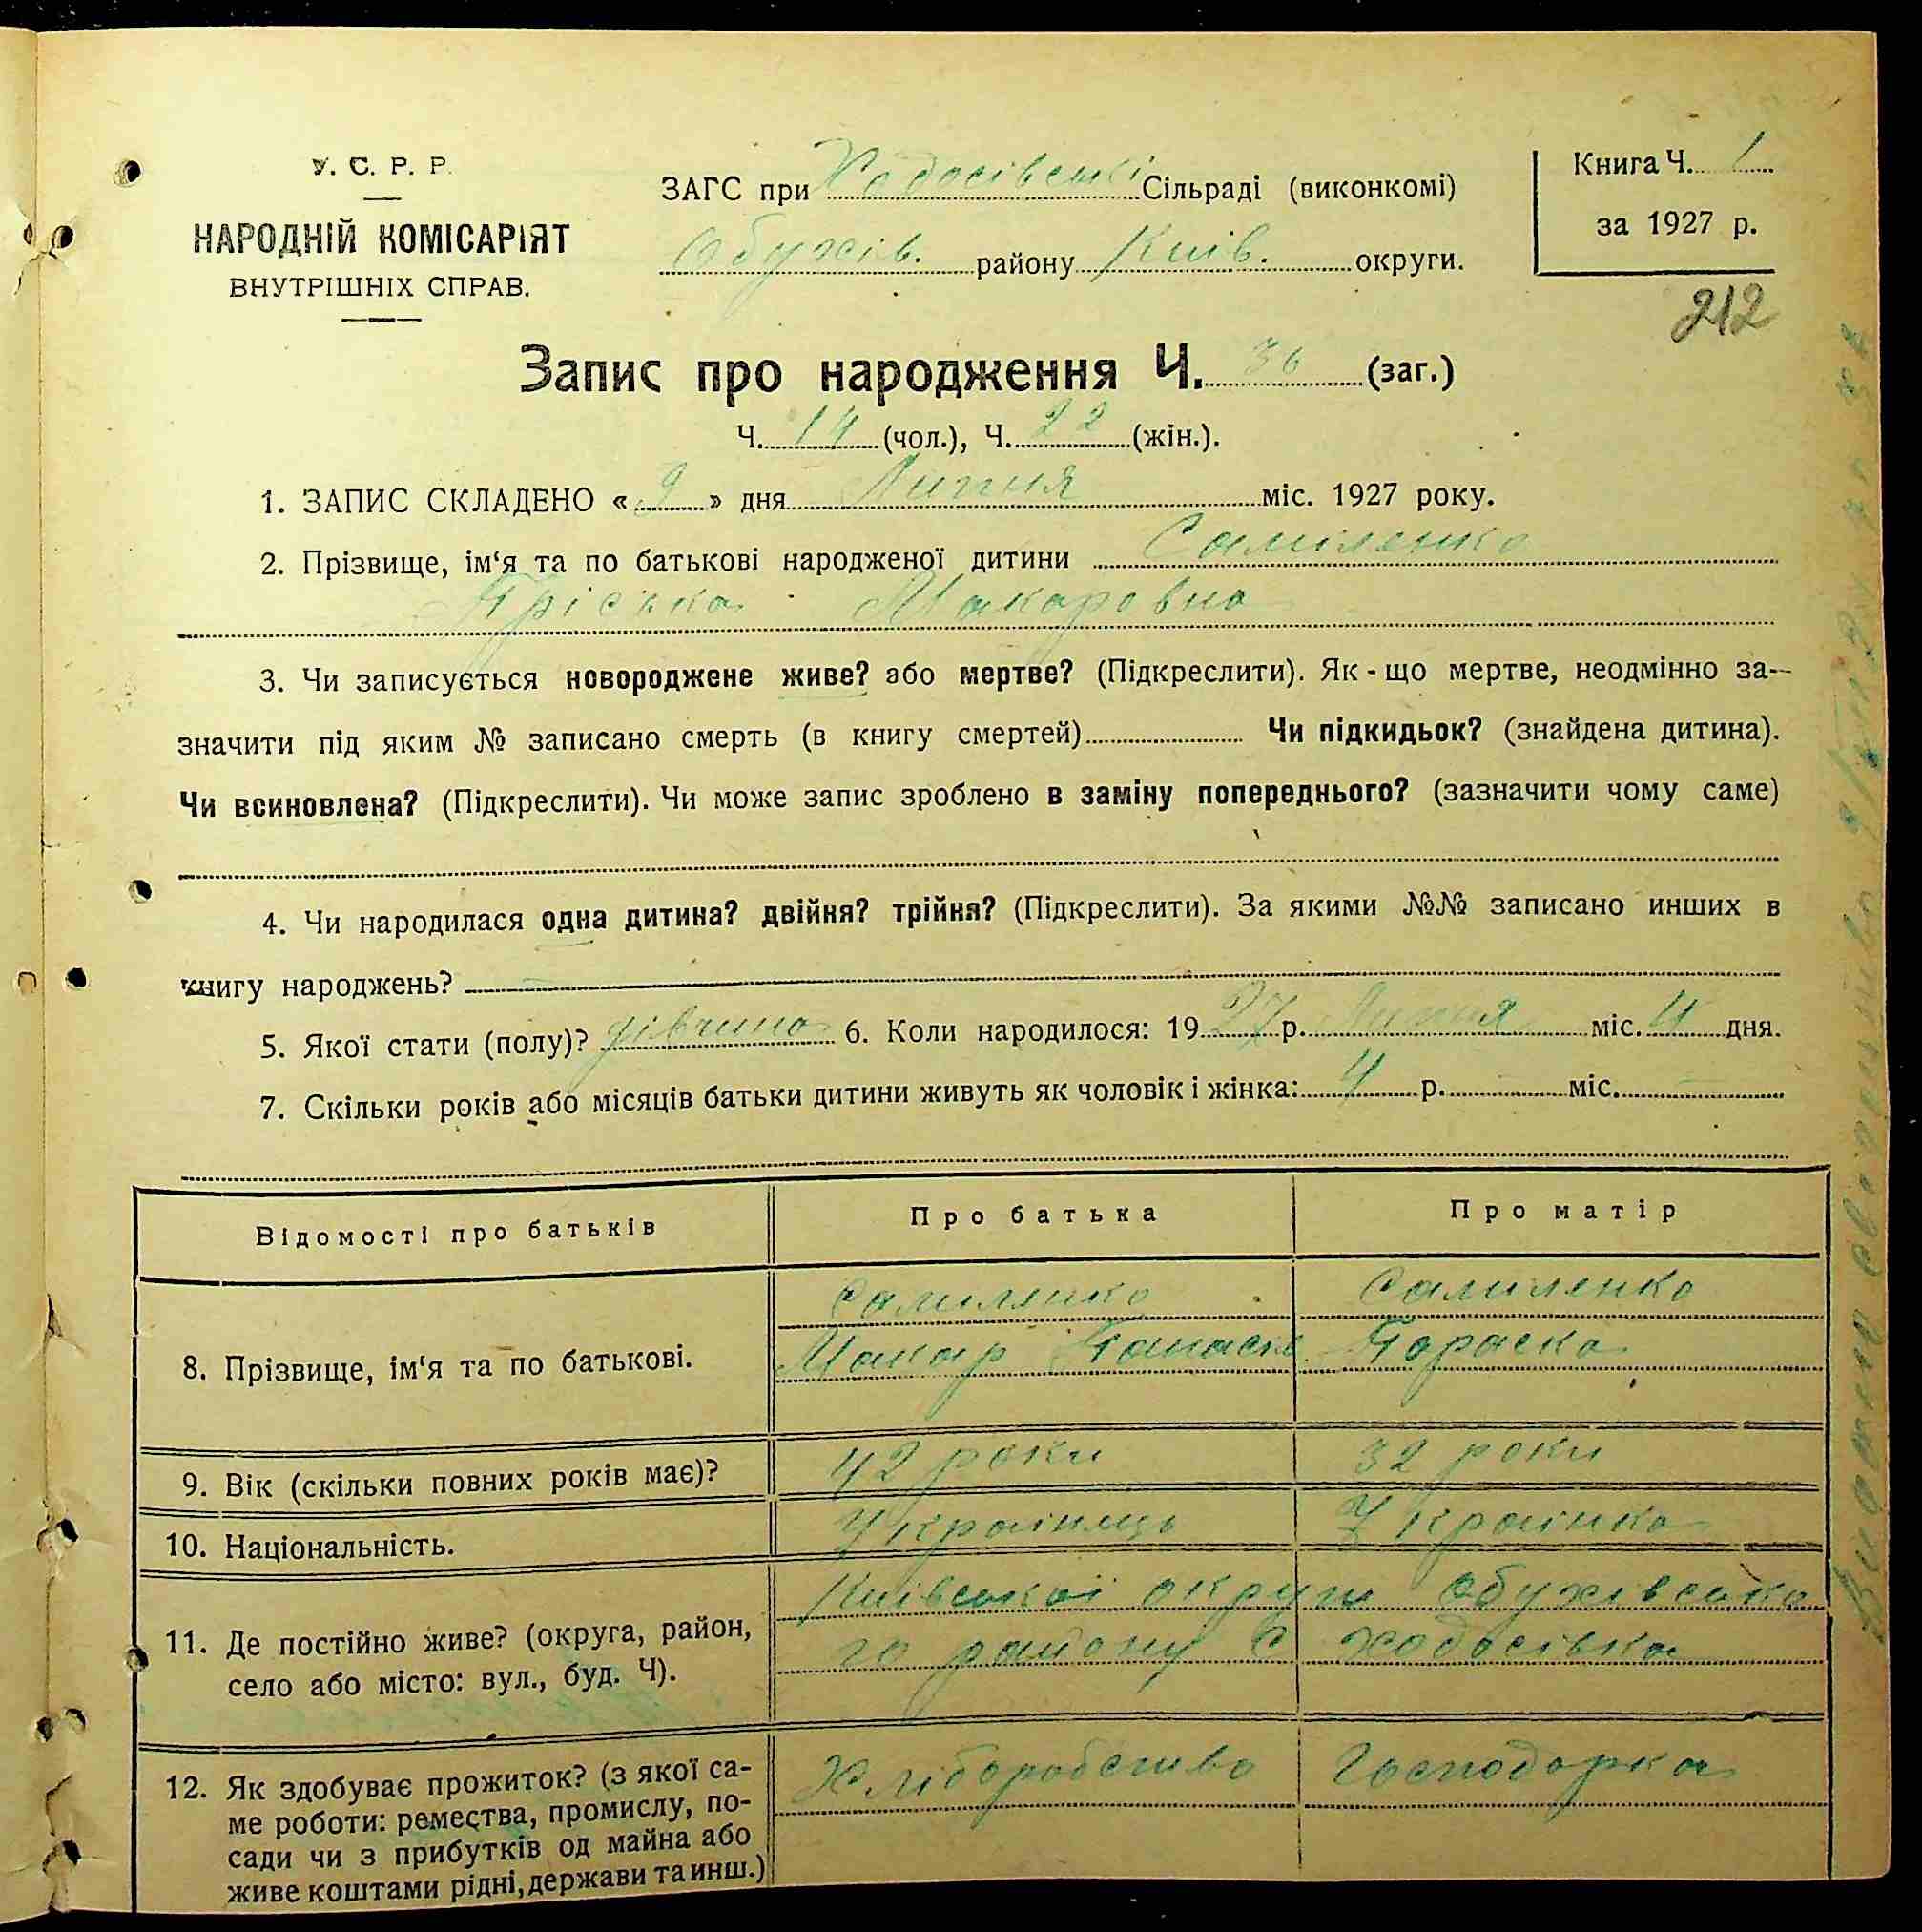 У. С. Р. Р.
НАРОДНІЙ КОМІСАРІЯТ
ВНУТРІШНІХ СПРАВ.
ЗАГС при Ходосівські Сільраді (виконкомі)
Обухів. району Київ. округи.
Книга Ч. 1
за 1927 р.
212
Запис про народження Ч. 36 (заг.)
Ч. 14 (чол.), Ч. 22 (жін.).
1. ЗАПИС СКЛАДЕНО « 9 » дня Липня міс. 1927 року.
2. Прізвище, ім‘я та по батькові народженої дитини Саміленко
Пріська Макаровна
3. Чи записується новороджене живе? або мертве? (Підкреслити). Як-що мертве, неодмінно за-
значити під яким № записано смерть (в книгу смертей) Чи підкидьок? (знайдена дитина).
Чи всиновлена? (Підкреслити). Чи може запис зроблено в заміну попереднього? (зазначити чому саме)
4. Чи народилася одна дитина? двійня? трійня? (Підкреслити). За якими №№ записано инших в
книгу народжень?
5. Якої стати (полу)? дівчина 6. Коли народилося: 1927 р. Липня міс. 4 дня.
7. Скільки років або місяців батьки дитини живуть як чоловік і жінка: 4 р. міс.
Відомості про батьків Про батька Про матір
8. Прізвище, ім‘я та по батькові.
Самиленко Самиленко
Макар Панасів Параска
9. Вік (скільки повних років має)? 42 роки 32 роки
10. Національність. Українець Українка
11. Де постійно живе? (округа, район,
село або місто: вул., буд. Ч).
Київської округи Обухівсько
го району С Ходосівка
12. Як здобуває прожиток? (з якої са-
ме роботи: ремества, промислу, по-
сади чи з прибутків од майна або
живе коштами рідні, держави та инш.)
Хліборобство Господарка